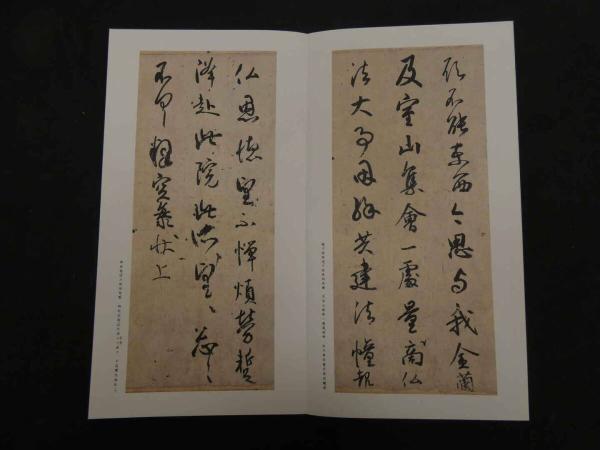 願不能東西今思与我金蘭
及室山集會一處量商仏
法大事因縁共建法幢報
仏恩徳望不憚煩勞蹔
降赴此院此所望々忩々
不具釋空海状上